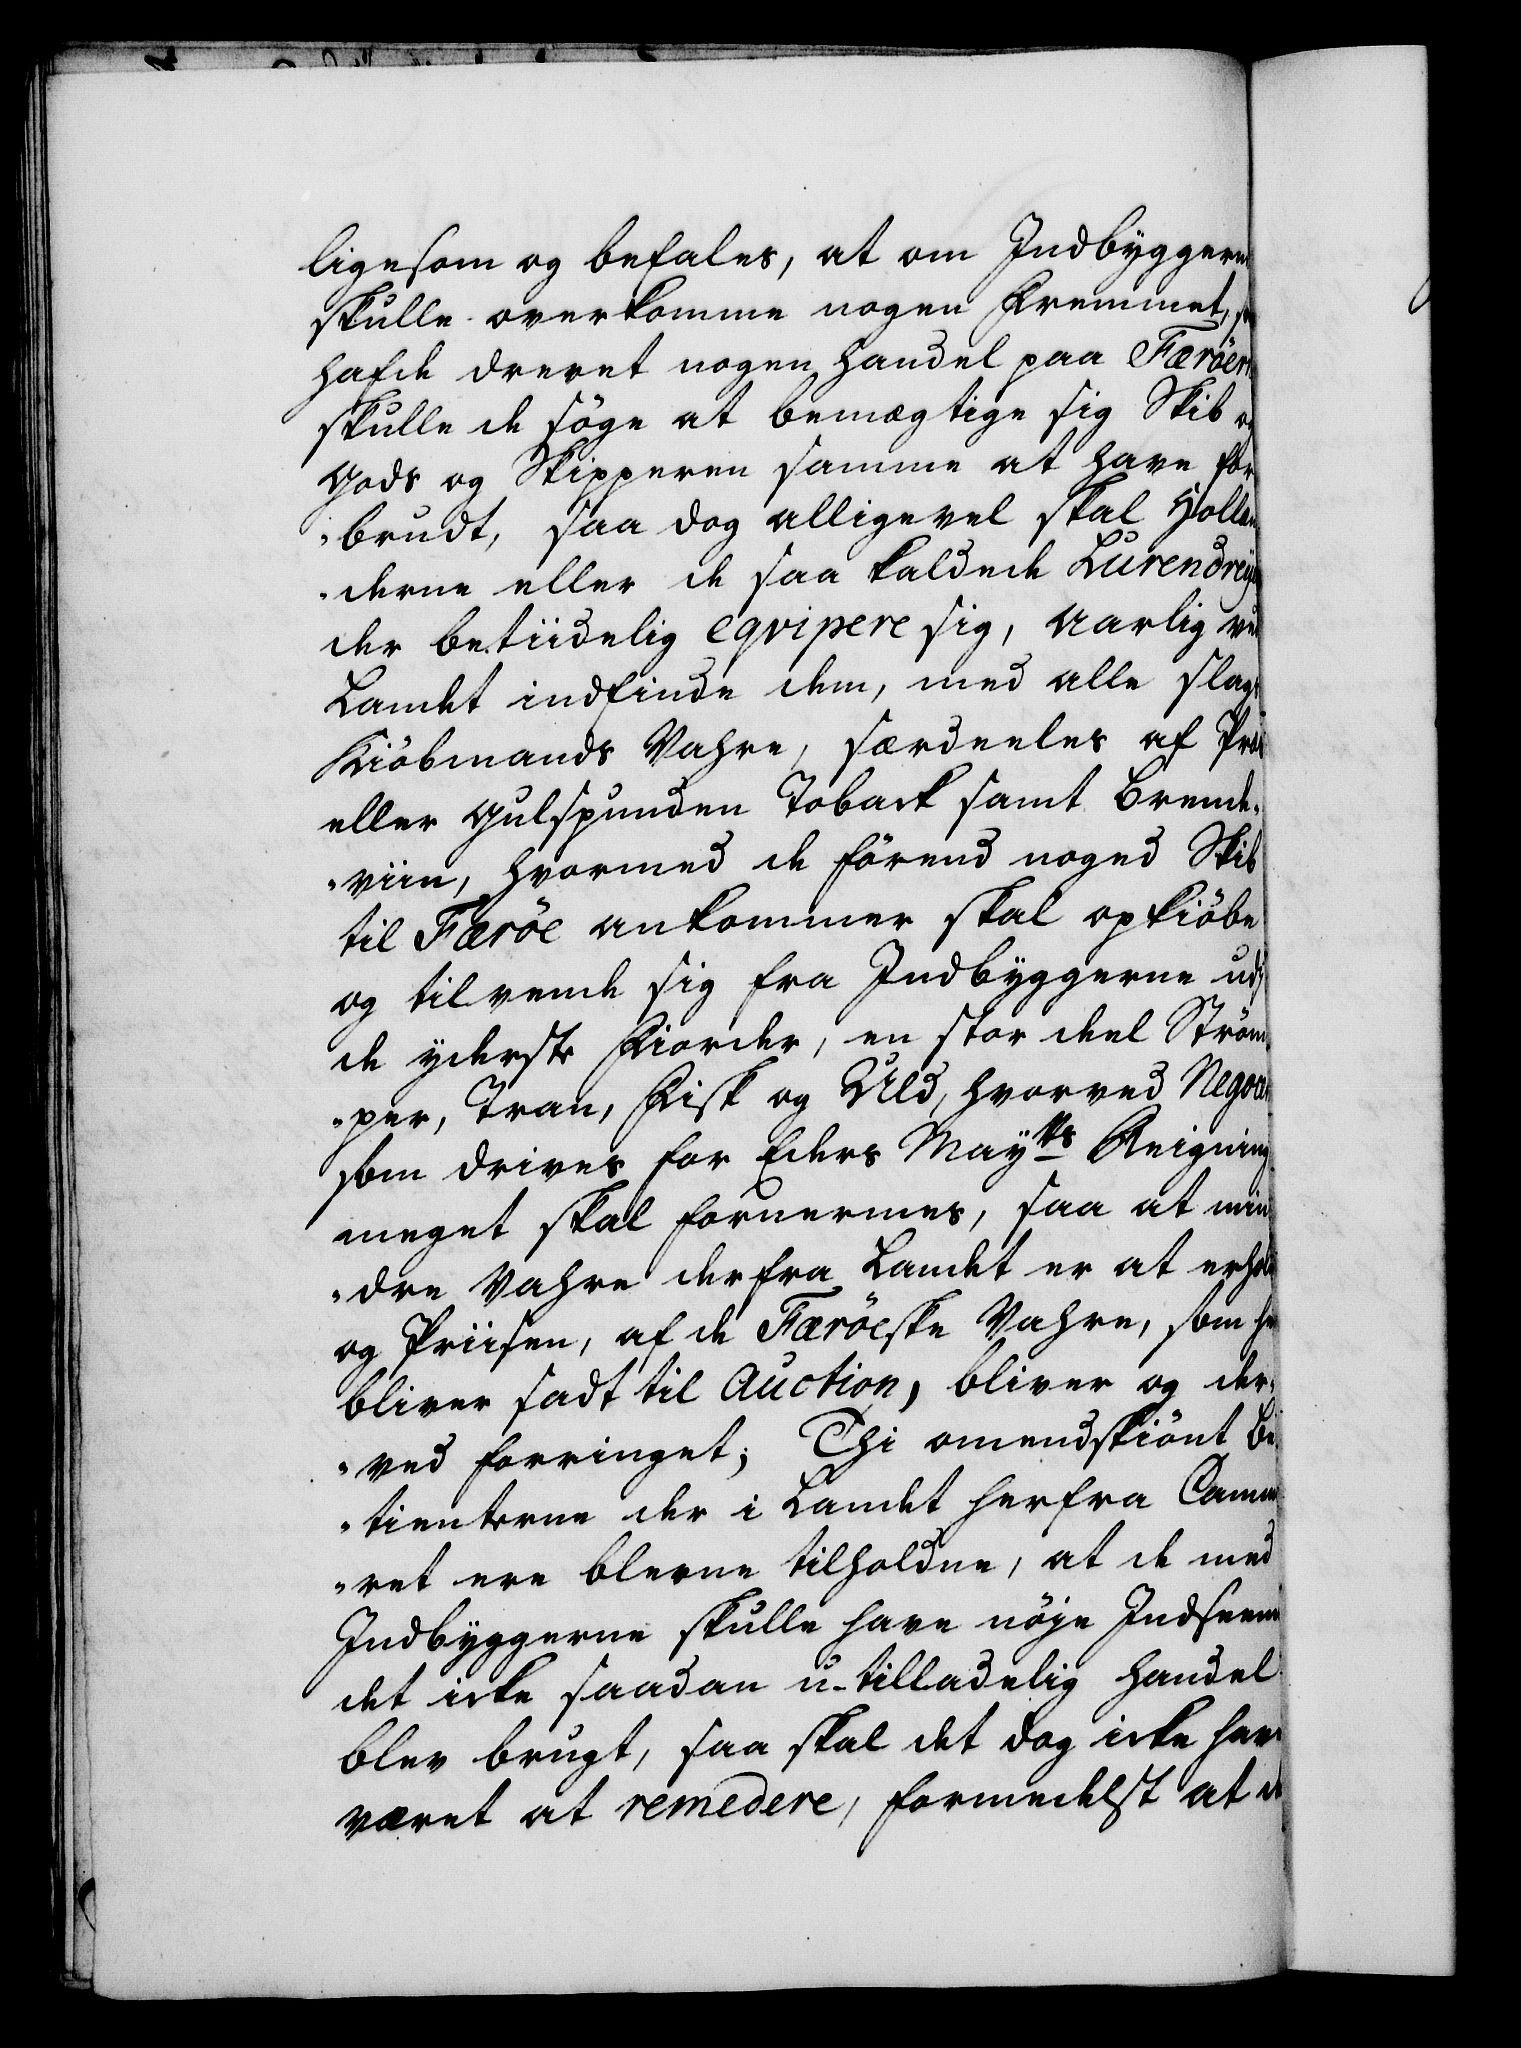 ligesom og befales, at om Indbyggerne
skulle overkomme nogen Fremmet,
hafde drevet nogen handel paa Færöern
skulle de söge at bemægtige sig Skib og
Gods og Skipperen samme at have for
"brudt, saa dog alligevel skal Hollæn
"derne eller de saa kaldede Lurendreÿe
der betiidelig eqvipere sig, Aarlig ved
Landet indfinde dem, med alle slags
Kiöbmands Vahre, særdeeles af
eller Gulspunden Toback samt Brende-
"viin, hvormed de förend noged Skib
til Færöe ankommer skal opkiöbe
og tilvende sig fra Indbyggerne udj
de ÿderste Fiorder, en stor deel Ström-
"per, Tran, Fisk og Uld, hvorved Negoce
som drives for Eders Maytts Reigning
meget skal fornermes, saa at min-
"dre Vahre derfra Landet er at erhol
og Priisen, af de Færöeske Vahre, som her
bliver sadt til Auction, bliver og der-
"ved forringet; Thi omendskiönt Be-
"tienterne der i Landet herfra Camme
"ret ere blevne tilholdne, at de med
Indbyggerne skulle have nöje Indseende
det icke saadan u-tilladelig handel
blev brugt, saa skal det dog icke have
været at remedere, formedelst at de